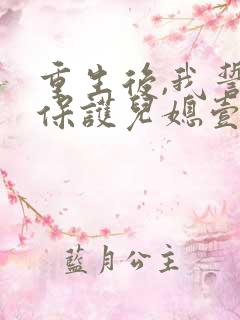 重生後,我誓
保護兒媳壹
藍月公主